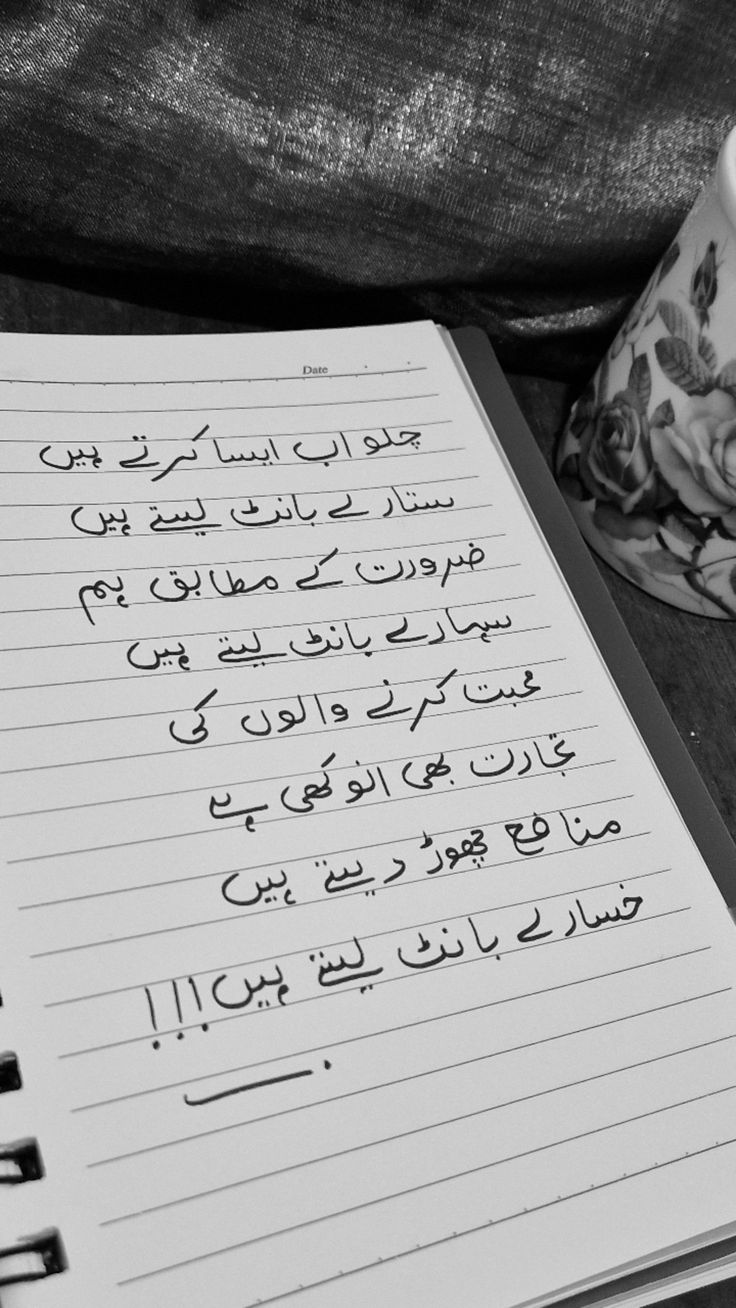 Date
چلو اب ایسا کرتے ہیں
ستارے بانٹ لیتے ہیں
ضرورت کے مطابق ہم
سہارے بانٹ لیتے ہیں
محبت کرنے والوں کی
تجارت بھی انوکھی ہے
منافع چھوڑ دیتے ہیں
خسارے بانٹ لیتے ہیں!!!